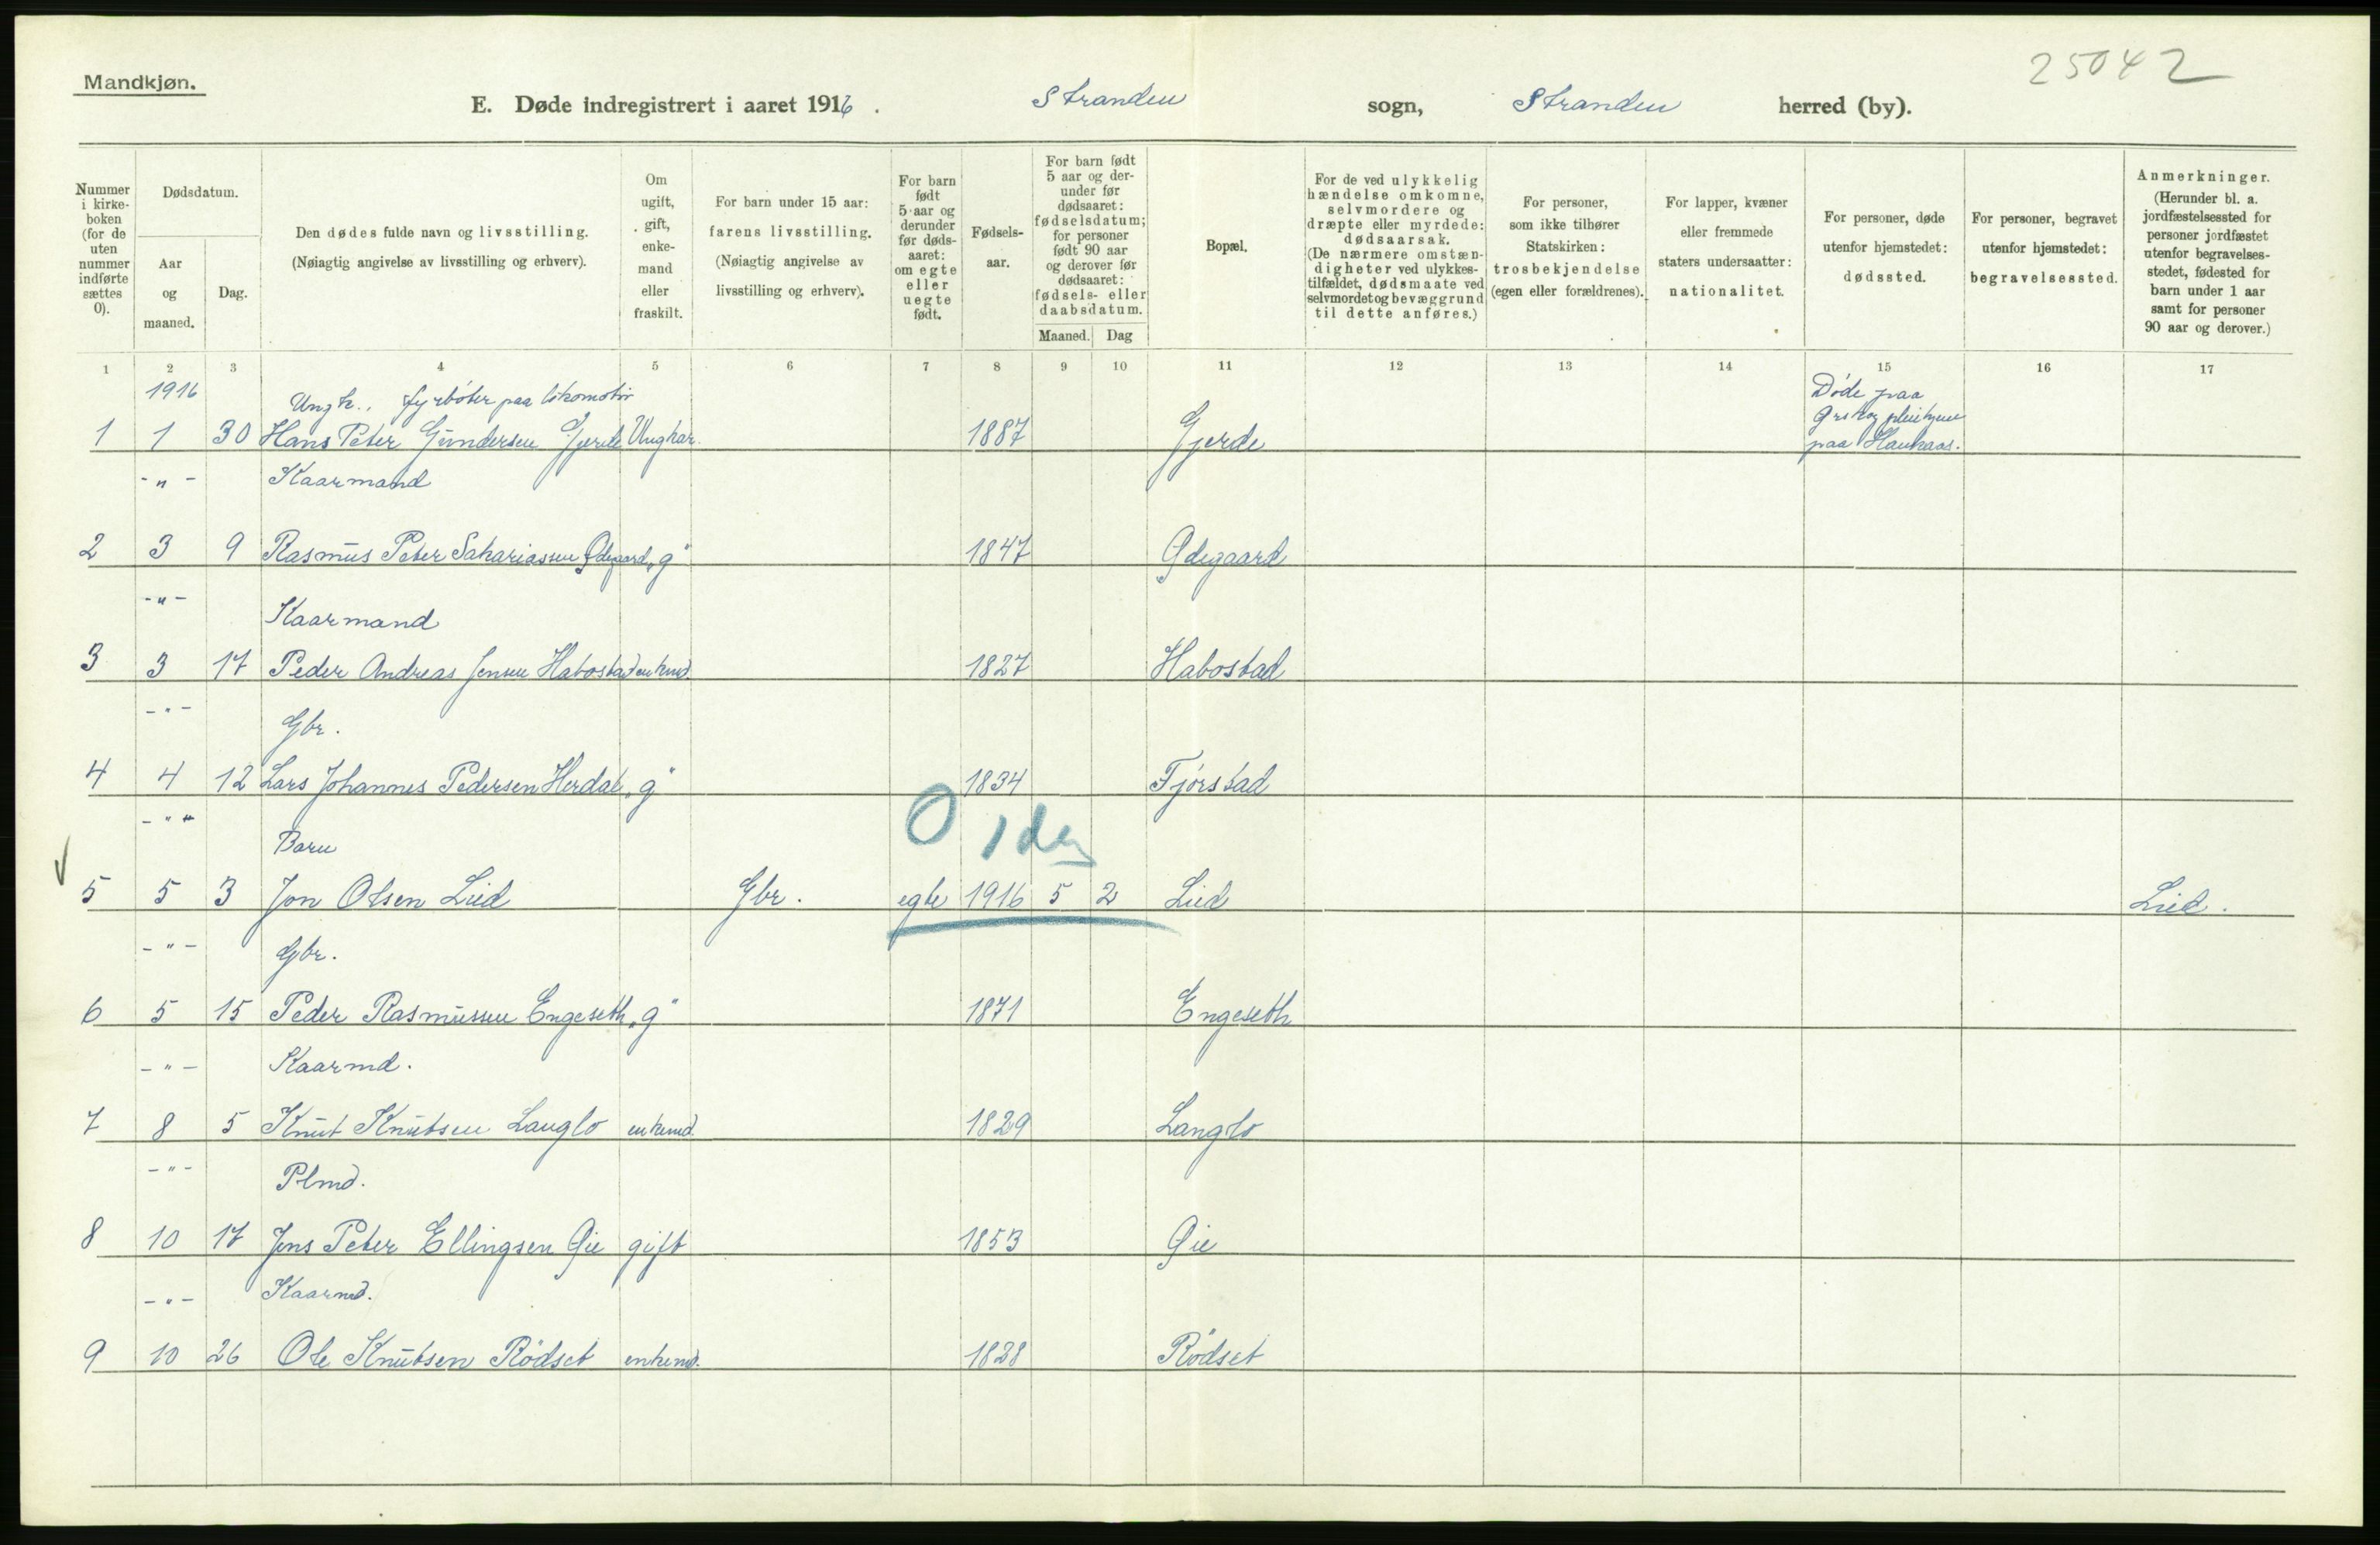 25042
Mandkjøn.
E. Døde indregistrert i aaret 1916. Stranden sogn, Stranden herred (by).
Nummer i kirke-boken (for de uten nummer indførte sættes 0).
Dødsdatum.
Aar og maaned.
Dag.
Den dødes fulde navn og livsstilling. (Nøiagtig angivelse av livsstilling og erhverv).
Om ugift, gift, enke-mand eller fraskilt.
For barn under 15 aar: farens livsstilling. (Nøiagtig angivelse av livsstilling og erhverv).
For barn født 5 aar og derunder før døds-aaret: om egte eller uegte født.
Fødsels-aar.
For barn født 5 aar og der-under før dødsaaret: fødselsdatum; for personer født 90 aar og derover før dødsaaret: fødsels- eller daabsdatum.
Maaned. Dag
Bopæl.
For de ved ulykkelig hændelse omkomne, selvmordere og dræpte eller myrdede: dødsaarsak. (De nærmere omstæn-digheter ved ulykkes-tilfældet, dødsmaate ved selvmordet og bevæggrund til dette anføres.)
For personer, som ikke tilhører Statskirken: trosbekjendelse (egen eller forældrenes).
For lapper, kvæner eller fremmede staters undersaatter: nationalitet.
For personer, døde utenfor hjemstedet: dødssted.
For personer, begravet utenfor hjemstedet: begravelsessted.
Anmerkninger. (Herunder bl. a. jordfæstelsessted for personer jordfæstet utenfor begravelses-stedet, fødested for barn under 1 aar samt for personer 90 aar og derover.)
1 2 3 4 5 6 7 8 9 10 11 12 13 14 15 16 17
1916 Ungk., fyrbøter paa lokomotiv Døde paa
1 1 30 Hans Peter Gundersen Gjerde Ungkar. 1887 Gjerde paa Haukaas.
-"- Kaarmand
2 3 9 Rasmus Peter Sakariassen Ødegaard "g" 1847 Ødegaard
-"- Kaarmand
3 3 17 Peder Andreas Jensen Habostad enkmd. 1827 Habostad
-"- Gbr.
4 4 12 Lars Johannes Pedersen Herdal "g" 1834 Fjørstad
0 1 dag
-"- Barn
5 5 3 Jon Olsen Lied Gbr. egte 1916 5 2 Lied Lied.
-"- Gbr.
6 5 15 Peder Rasmussen Engeseth "g" 1871 Engeseth
-"- Kaarmd.
7 8 5 Knut Knutsen Langlo enkemd. 1829 Langlo
-"- Plmd.
8 10 17 Jens Peter Ellingsen Øie gift 1853 Øie
-"- Kaarmd.
9 10 26 Ole Knutsen Rødset enkemd. 1828 Rødset